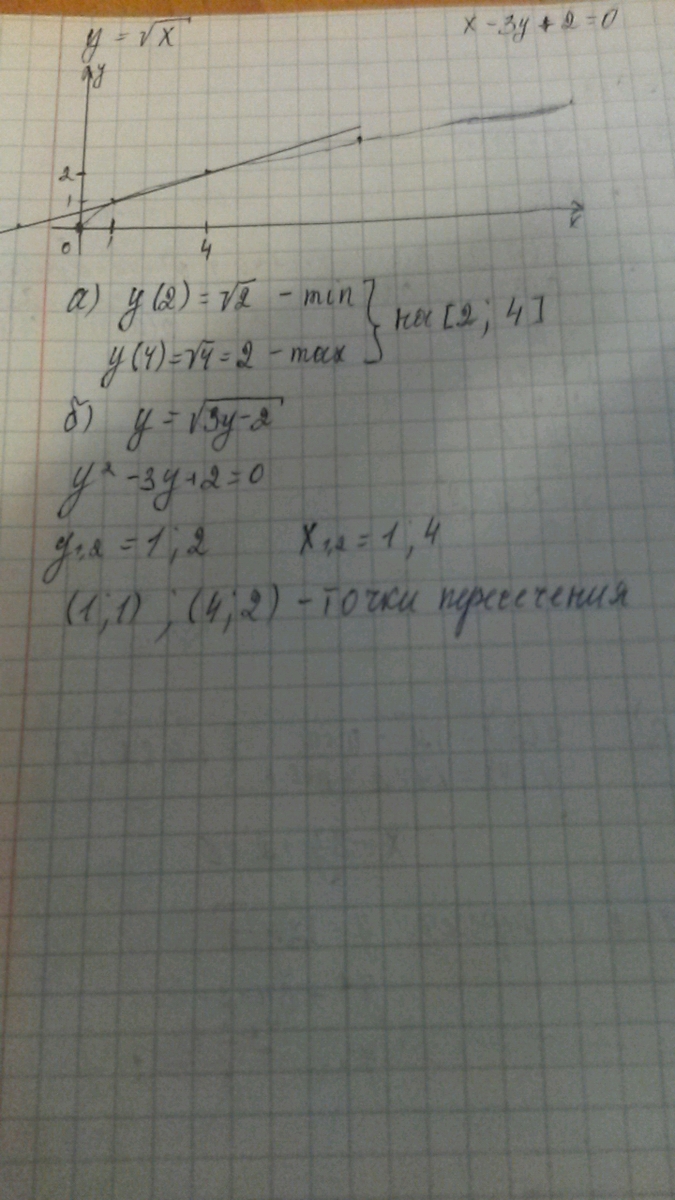 y = √x
x - 3y + 2 = 0
y
2
1
0 1 4 x
а) y(2) = √2 - min
y(4) = √4 = 2 - max } на [2; 4]
б) y = √3y-2
y² - 3y + 2 = 0
y₁,₂ = 1; 2 x₁,₂ = 1; 4
(1; 1) ; (4; 2) - точки пересечения